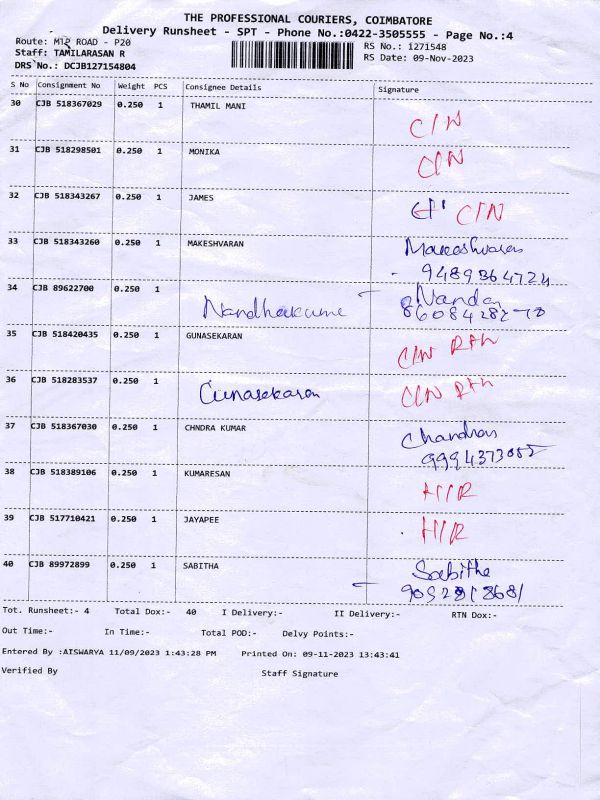 THE PROFESSIONAL COURIERS, COIMBATORE
Delivery Runsheet - SPT - Phone No.:0422-3505555 - Page No.:4
Route: ROAD - P20
RS No.: 1271548
Staff: TAMILARASAN R
RS Date: 09-Nov-2023
DRS No.: DCJB127154804
S No Consignment No Weight PCS Consignee Details Signature
30 CJB 518367029 0.250 1 THAMIL MANI C/N
31 CJB 518298501 0.250 1 MONIKA C/N
32 CJB 518343267 0.250 1 JAMES C/N
33 CJB 518343260 0.250 1 MAKESHVARAN Makeshvaran
9489364724
34 CJB 89622700 0.250 1 Nandhakume Nanda
35 CJB 518420435 0.250 1 GUNASEKARAN C/N
36 CJB 518283537 0.250 1 Gunasekaran C/N
37 CJB 518367030 0.250 1 CHNDRA KUMAR Chandran
38 CJB 518389106 0.250 1 KUMARESAN H/R
39 CJB 517710421 0.250 1 JAYAPEE H/R
40 CJB 89972899 0.250 1 SABITHA Sabitha
Tot. Runsheet:- 4 Total Dox:- 40 I Delivery:- II Delivery:- RTN Dox:-
Out Time:- In Time:- Total POD:- Delvy Points:-
Entered By :AISWARYA 11/09/2023 1:43:28 PM Printed On: 09-11-2023 13:43:41
Verified By Staff Signature